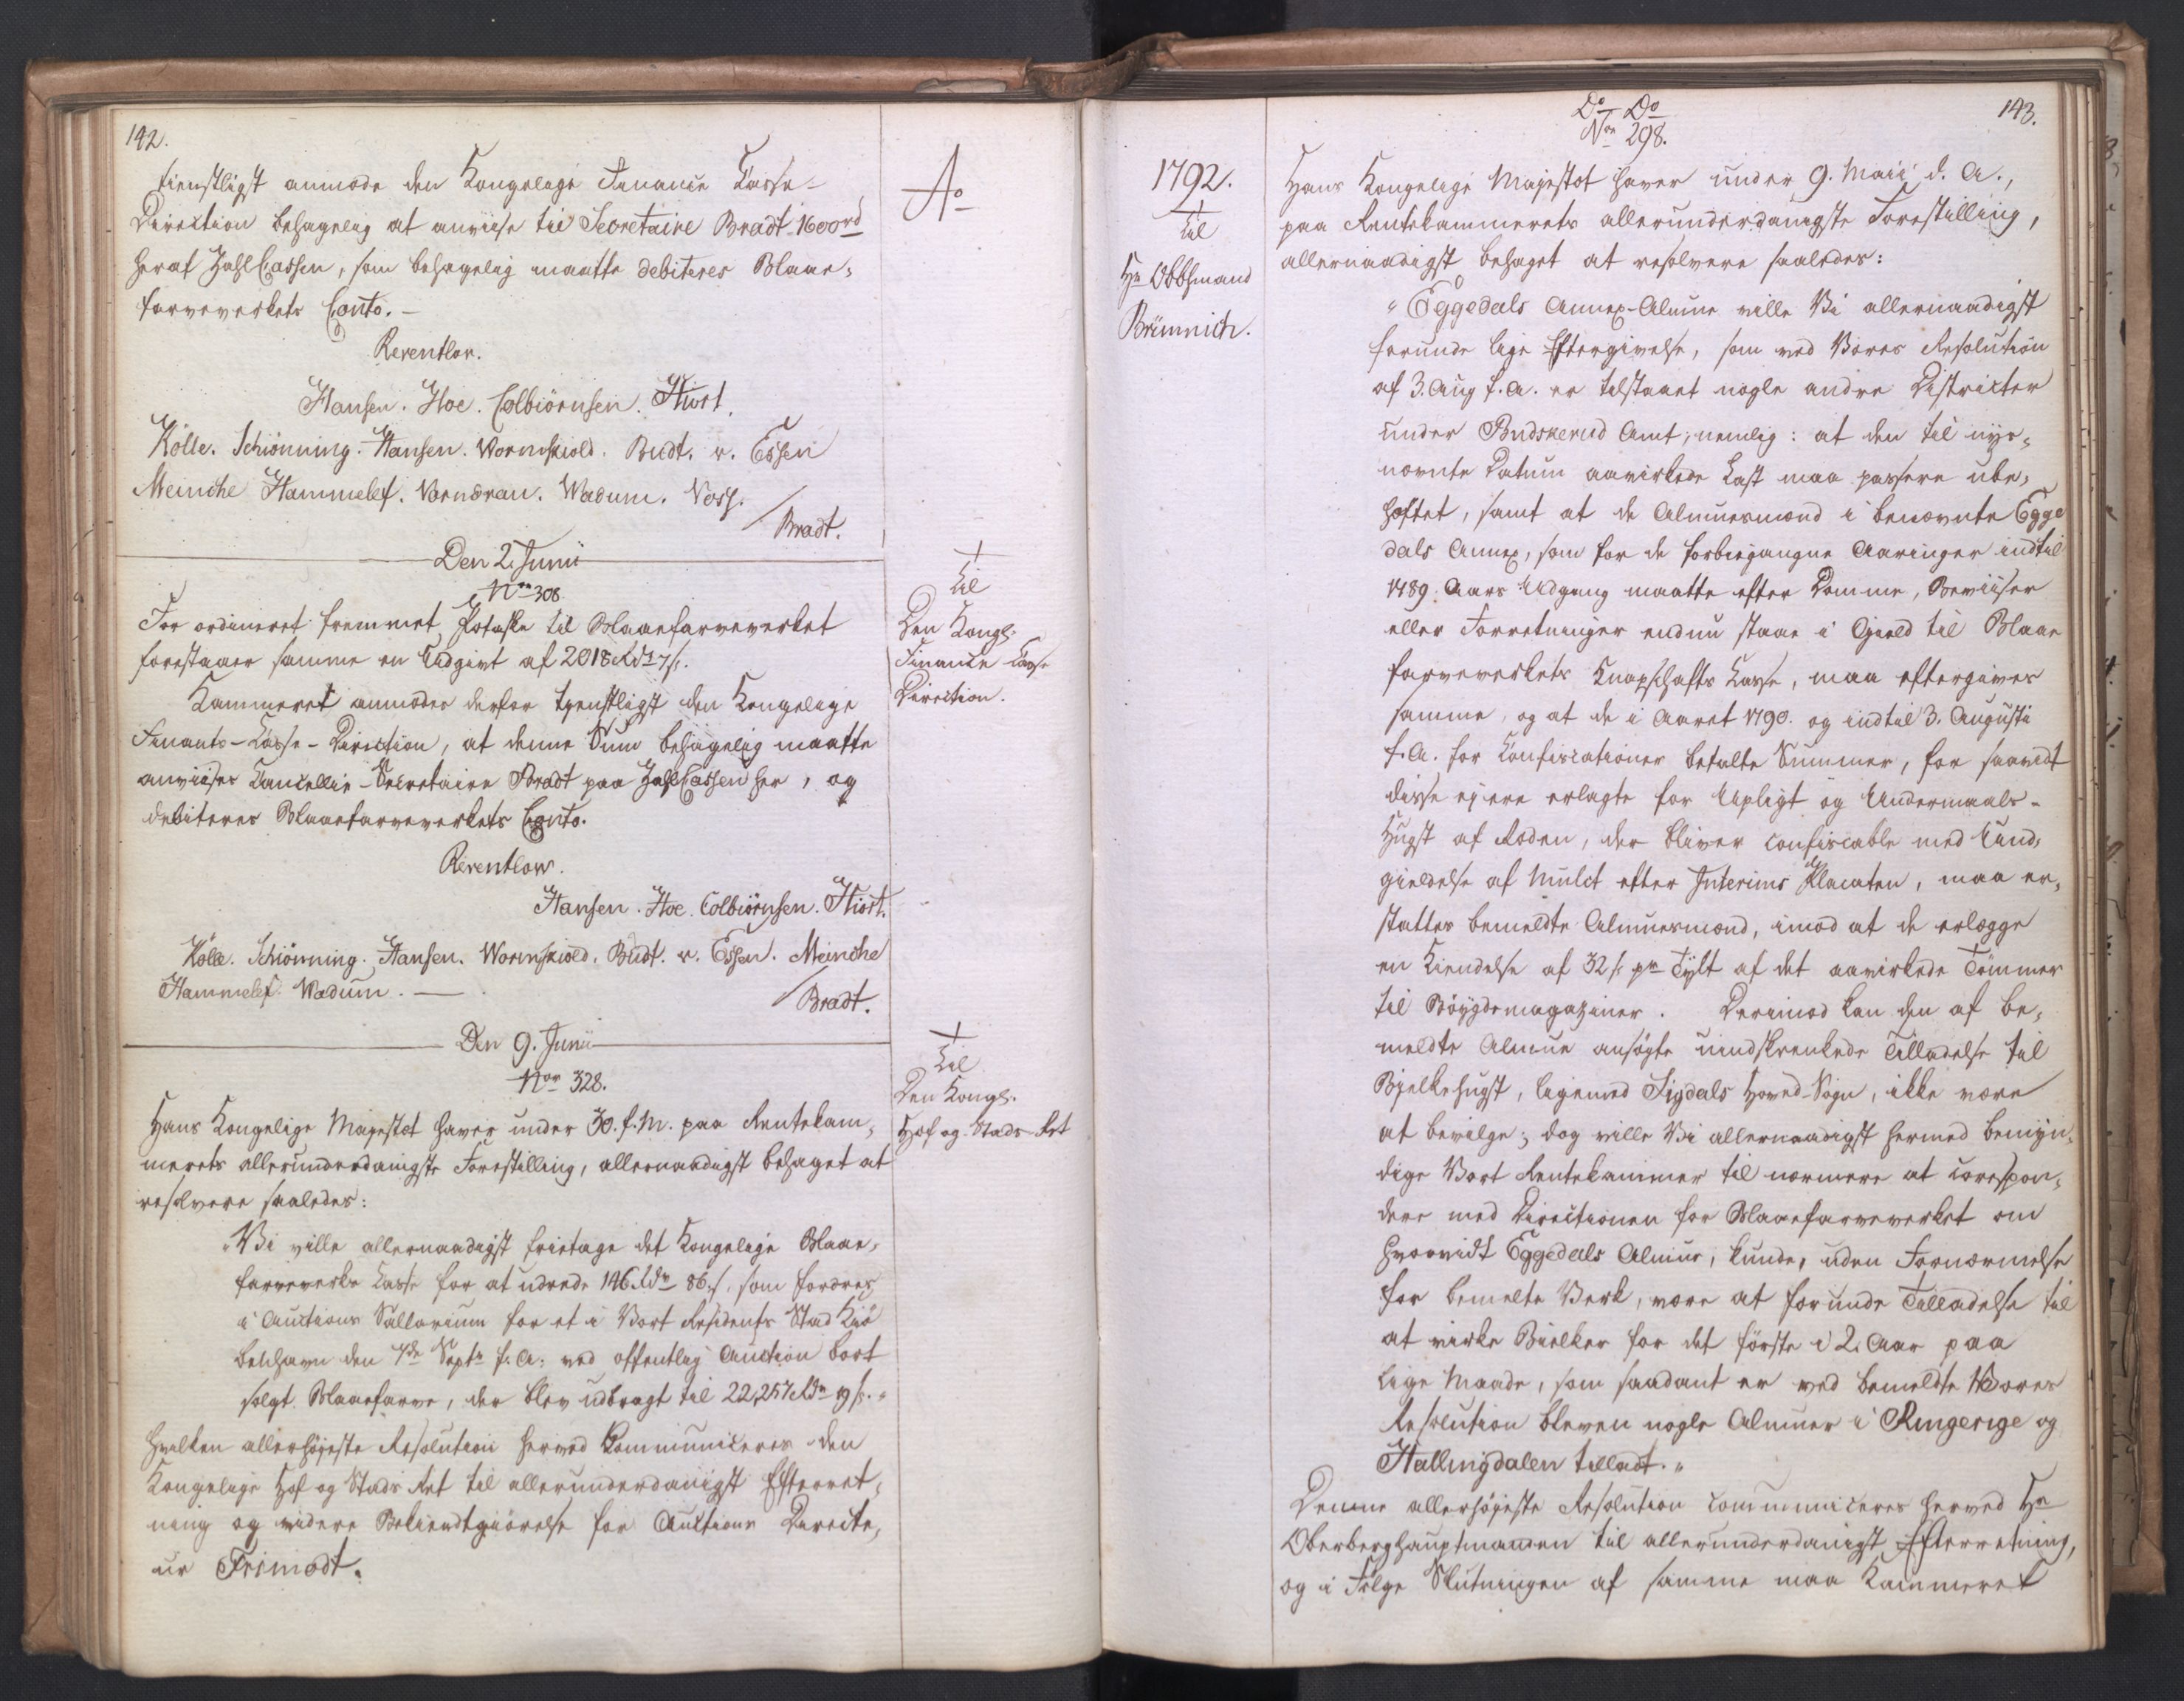 142.
A<sup>o</sup>
tienstligst anmode den Kongelige Finance Casse-
Direction behagelig at anviise til Secretaire Bradt 1600 rd
heraf ZahlCassen, som behagelig maatte debiteres Blaae-
farveverkets Conto. –
Reventlov.
Hansen. Hoe. Colbiörnsen. Hiort.
Kölle. Schiönning. Hansen. Wormskiold. Budt. v. Essen
Meinche Hammelef. Vorndran. Wadum. Voss.
/Bradt.
Den 2. Junii
Nor 308.
Til
Den Kongl.
Finance Casse
Direction.
For ordineret fremmet Potaske til Blaaefarveverket
forestaaer samme en Udgivt af 2018 Rdr 7 s.
Kammeret anmoder derfor tjenstligst den Kongelige
Finants-Casse-Direction, at denne Sum behagelig maatte
anviises Cancellie-Secretaire Bradt paa ZahlCassen her, og
debiteres Blaaefarveverkets Conto.
Reventlow.
Hansen. Hoe. Colbiörnsen. Hiort.
Kölle. Schiönning. Hansen. Wormskiold. Budt. v. Essen. Meinche
Hammelef. Wadum. –
/Bradt.
Den 9. Junii
Nor 328.
Til
Den Kongl.
Hof og Stads-Ret
Hans Kongelige Majestet haver under 30. f. M. paa Rentekam-
merets allerunderdanigste Forestilling, allernaadigst behaget at
resolvere saaledes:
"Vi ville allernaadigst fritage det Kongelige Blaae-
farveverks Casse for at udrede 146 Rdr 86 s. som fordres
i Auctions Sallarium for et i Vort Residents Stad Kiö
benhavn den 7de Septr f. A. ved offentlig Auction bort
solgt Blaaefarve, der blev udbragt til 22,257 Rdr 9 s."
Hvilken allerhöjeste Resolution herved Communiceres den
Kongelige Hof og Stads Ret til allerunderdanigst Efterret-
ning og videre Bekiendtgiörelse for Auctions Directe-
ur Frimodt.
143.
Do Do
Nor 298.
1792.
Til
Hr Obbhmand
Brünnich.
Hans Kongelige Majestet haver under 9. Maii d. A.,
paa Rentekammerets allerunderdanigste Forestilling,
allernaadigst behaget at resolvere saaledes:
"Eggedals Annex-Almue ville Vi allernaadigst
forunde lige Eftergivelse, som ved Vores Resolution
af 3. Aug f. A. er tilstaaet nogle andre Districter
under Budskerud Amt, nemlig: at den til nys-
nævnte Datum aavirkede Last maa passere ube-
hæftet, samt at de Almuesmænd i benævnte Egge
dals Annex, som for de forbigangne Aaringer indtil
1789 Aars Udgang maatte efter Domme, Beviiser
eller Forretninger endnu staae i Gjæld til Blaae
farveverkets Knapschafts Casse, maa eftergives
samme, og at de i Aaret 1790. og indtil 3. Augusti
f. A. for Confiscationer betalte Summer, for saavidt
disse ej ere erlagte for Upligt og Undermaals-
Hugst af Roden, der bliver confiscable med Und-
gieldelse af Mulct efter Interims Placaten, maa er-
stattes bemeldte Almuesmænd, imod at de erlægge
en Kiendelse af 32 s. pr Tylt af det aavirkede Tömmer
til Böygdemagaziner. Derimod kan den af be-
meldte Almue ansögte uindskrænkede Tilladelse til
Bjelkehugst, ligemed Sigdals Hoved-Sogn, ikke være
at bevilge; dog ville Vi allernaadigst hermed bemyn-
dige Vort Rentekammer til nærmere at Correspon-
dere med Directionen for Blaaefarveverket om
hvorvidt Eggedals Almue, kunde, uden Fornærmelse
for bemelte Verk, være at forunde Tilladelse til
at virke Bielker for det förste i 2. Aar paa
lige Maade, som saadant er ved bemeldte Vores
Resolution bleven nogle Almuer i Ringerige og
Hallingdalen tilladt."
Denne allerhöjeste Resolution communiceres herved Hr
Oberberghauptmanden til allerunderdanigst Efterretning,
og i Fölge Slutningen af samme maa Kammeret